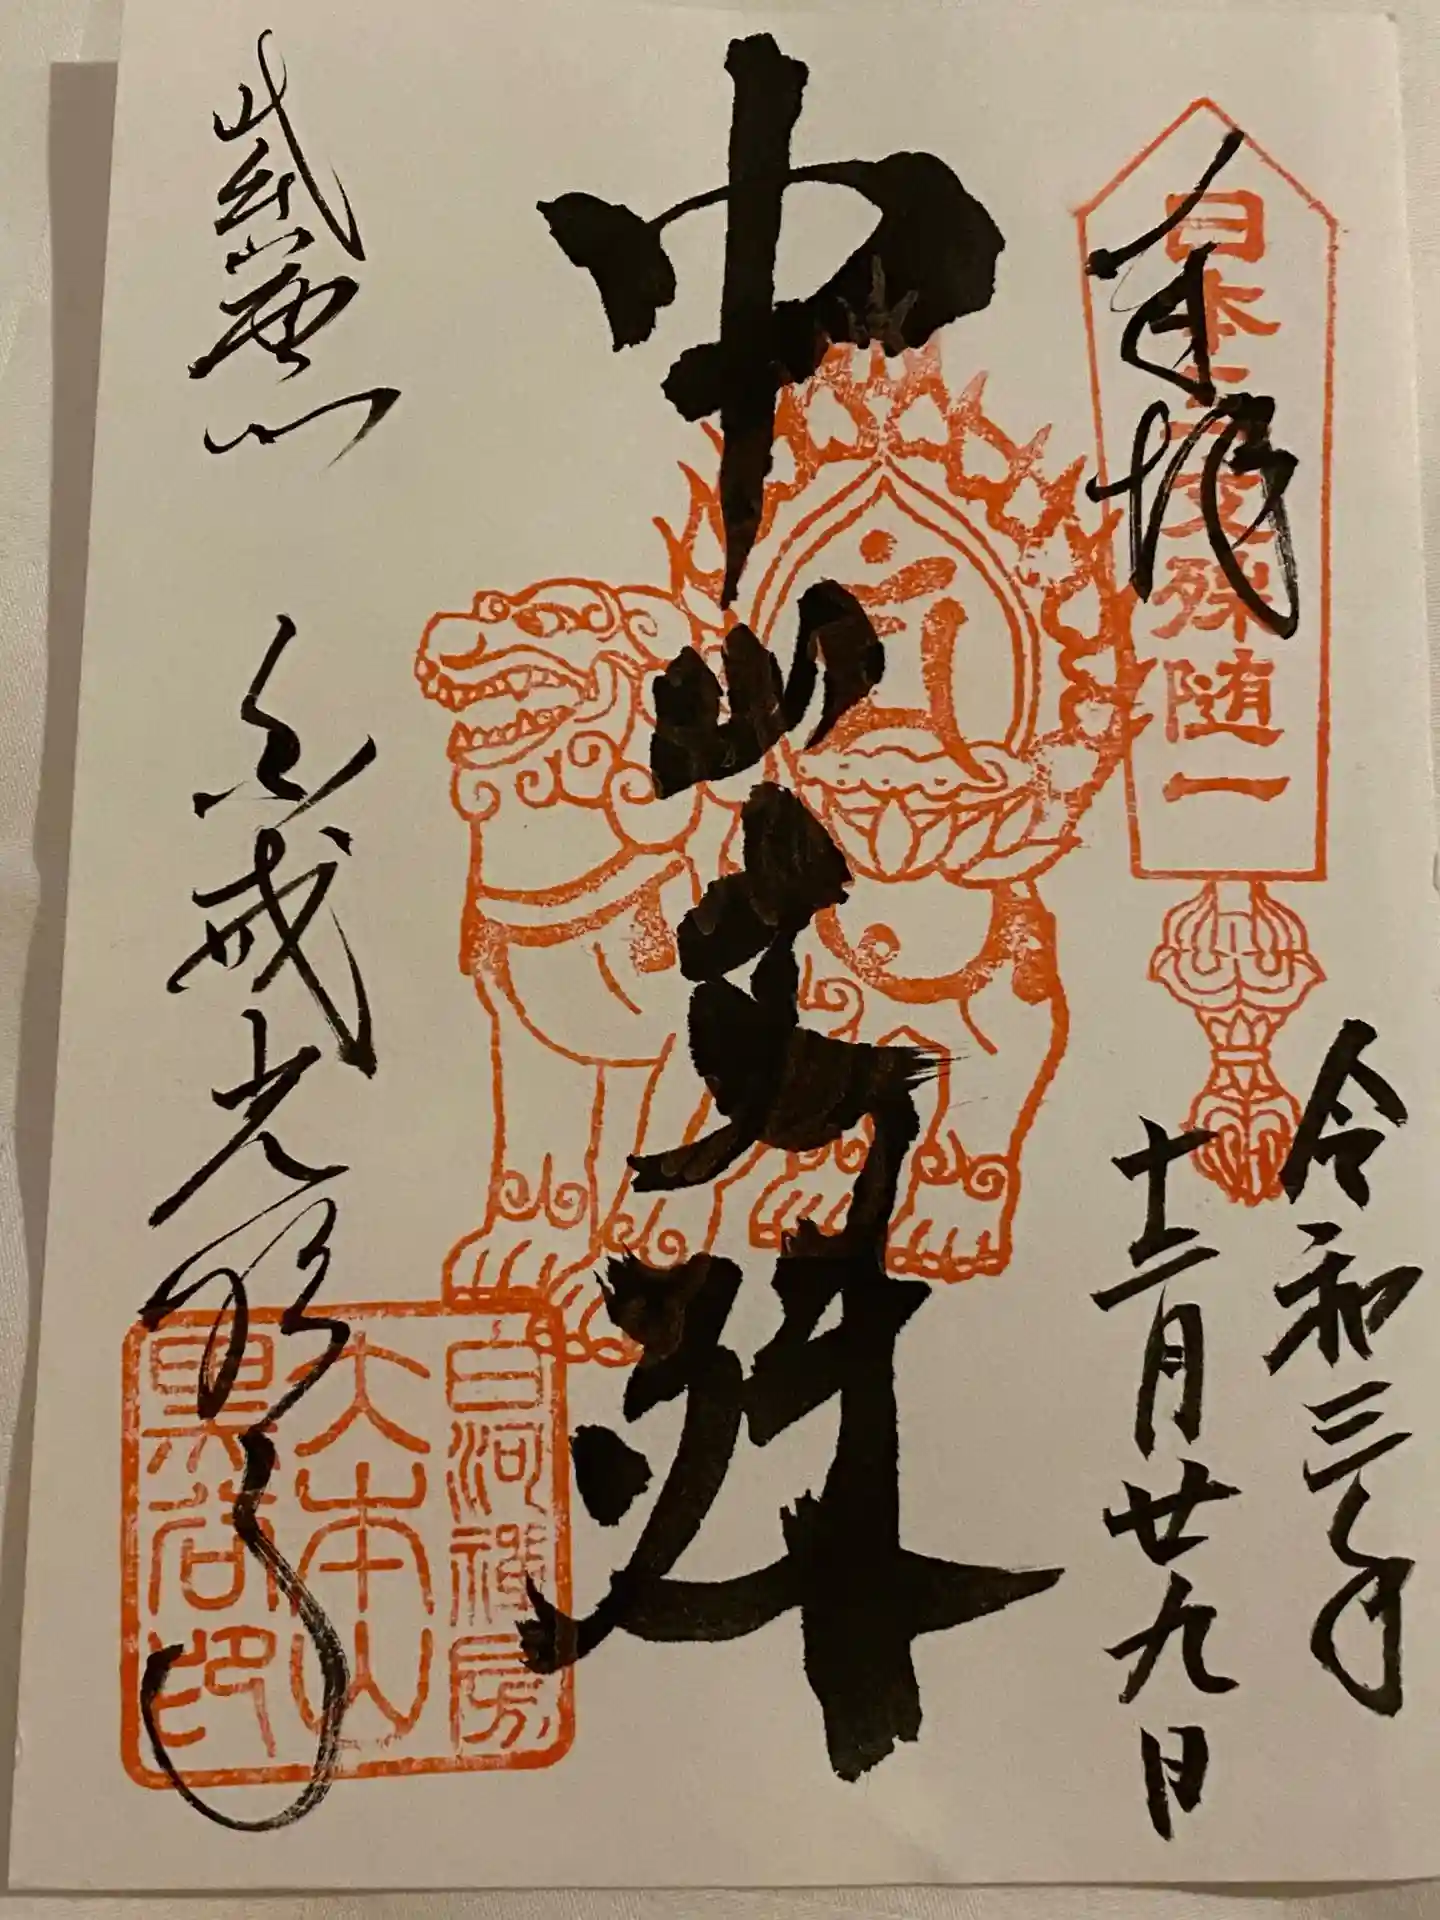 奉拝
日本三文殊随一
令和三年
十二月廿九日
中山文殊
紫雲山
金戒光明寺
白河禅房
大本山
黒谷印